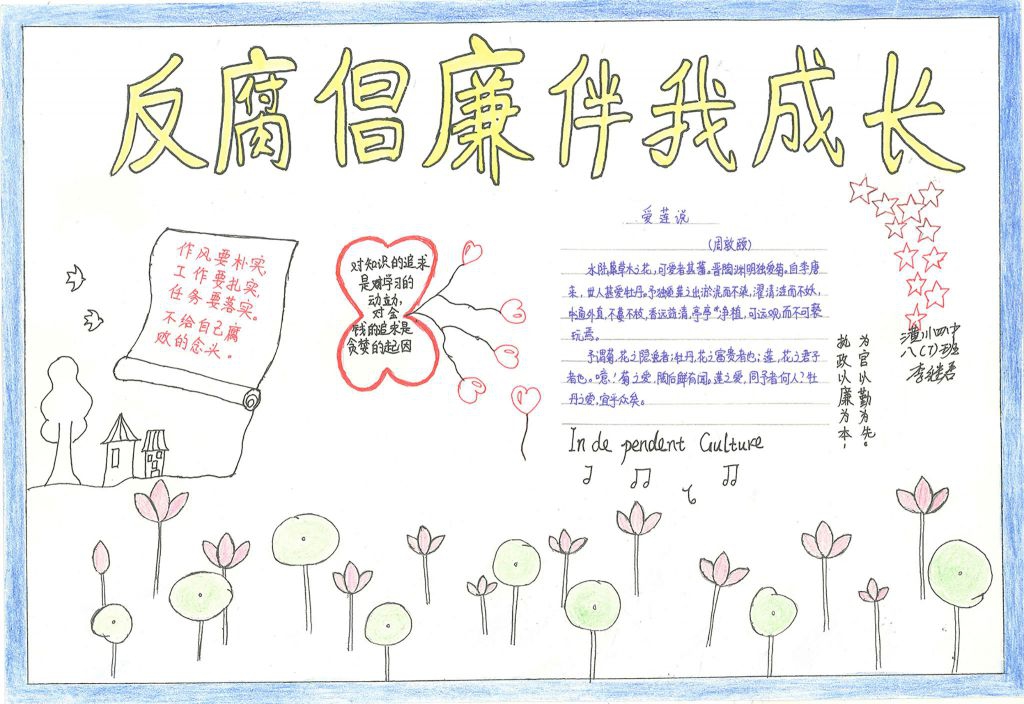 反腐倡廉伴我成长
作风要朴实,
工作要扎实,
任务要落实。
不给自己腐
败的念头。
对知识的追求
是对学习的
动立动,
对金
钱的追求是
贪婪的起因
爱莲说
(周敦颐)
水陆草木之花,可爱者甚蕃。晋陶渊明独爱菊。自李唐
来,世人甚爱牡丹。予独爱莲之出淤泥而不染,濯清涟而不妖,
中通外直,不蔓不枝,香远益清,亭亭净植,可远观而不可亵
玩焉。
予谓菊,花之隐逸者;牡丹,花之富贵者也;莲,花之君子
者也。噫!菊之爱,陶后鲜有闻。莲之爱,同予者何人?牡
丹之爱,宜乎众矣。
In de pendent Gulture
为官以勤为先。
执政以廉为本,
四中
八(7)班
李